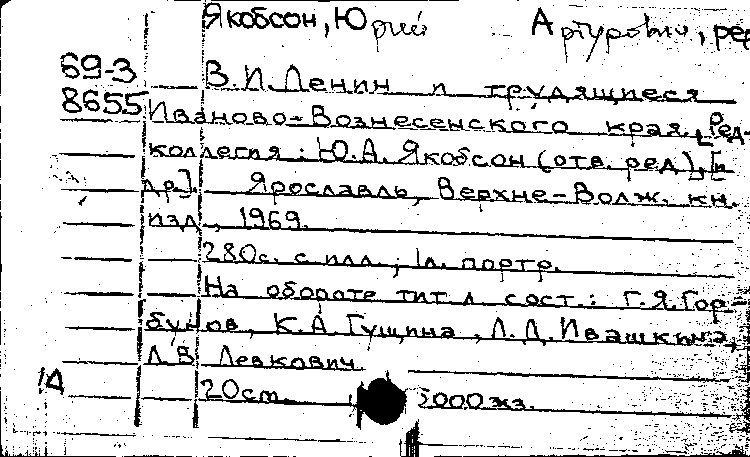 Якобсон, Юрий Артурович, ред
69-3
8655
В.И.Ленин и трудящиеся
Иваново-Вознесенского края. [Ред-
коллегия: Ю.А. Якобсон (отв. ред), [и
др.]. Ярославль, Верхне-Волж. кн.
изд, 1969.
280с. с илл.; 1л. портр.
На обороте тит.л сост.: Г.Я.Гор-
бунов, К.А Гущина, Л.Д.Ивашкина,
Л.В Левкович
20см. 5000экз.